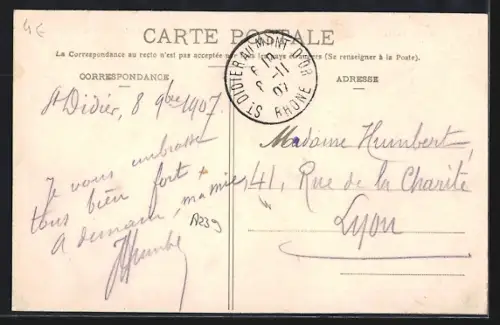 4€
CARTE POSTALE
La Correspondance au recto n'est pas acceptée par tous les pays étrangers (Se renseigner à la Poste).
CORRESPONDANCE
ADRESSE
ST DIDIER AU MONT D'OR
8 -11
07
RHONE
St Didier, 8 9bre 1907.
Je vous embrasse
tous bien fort +
A demain, ma mie,
A239
Humbe
Madame Humbert,
41, Rue de la Charité
Lyon